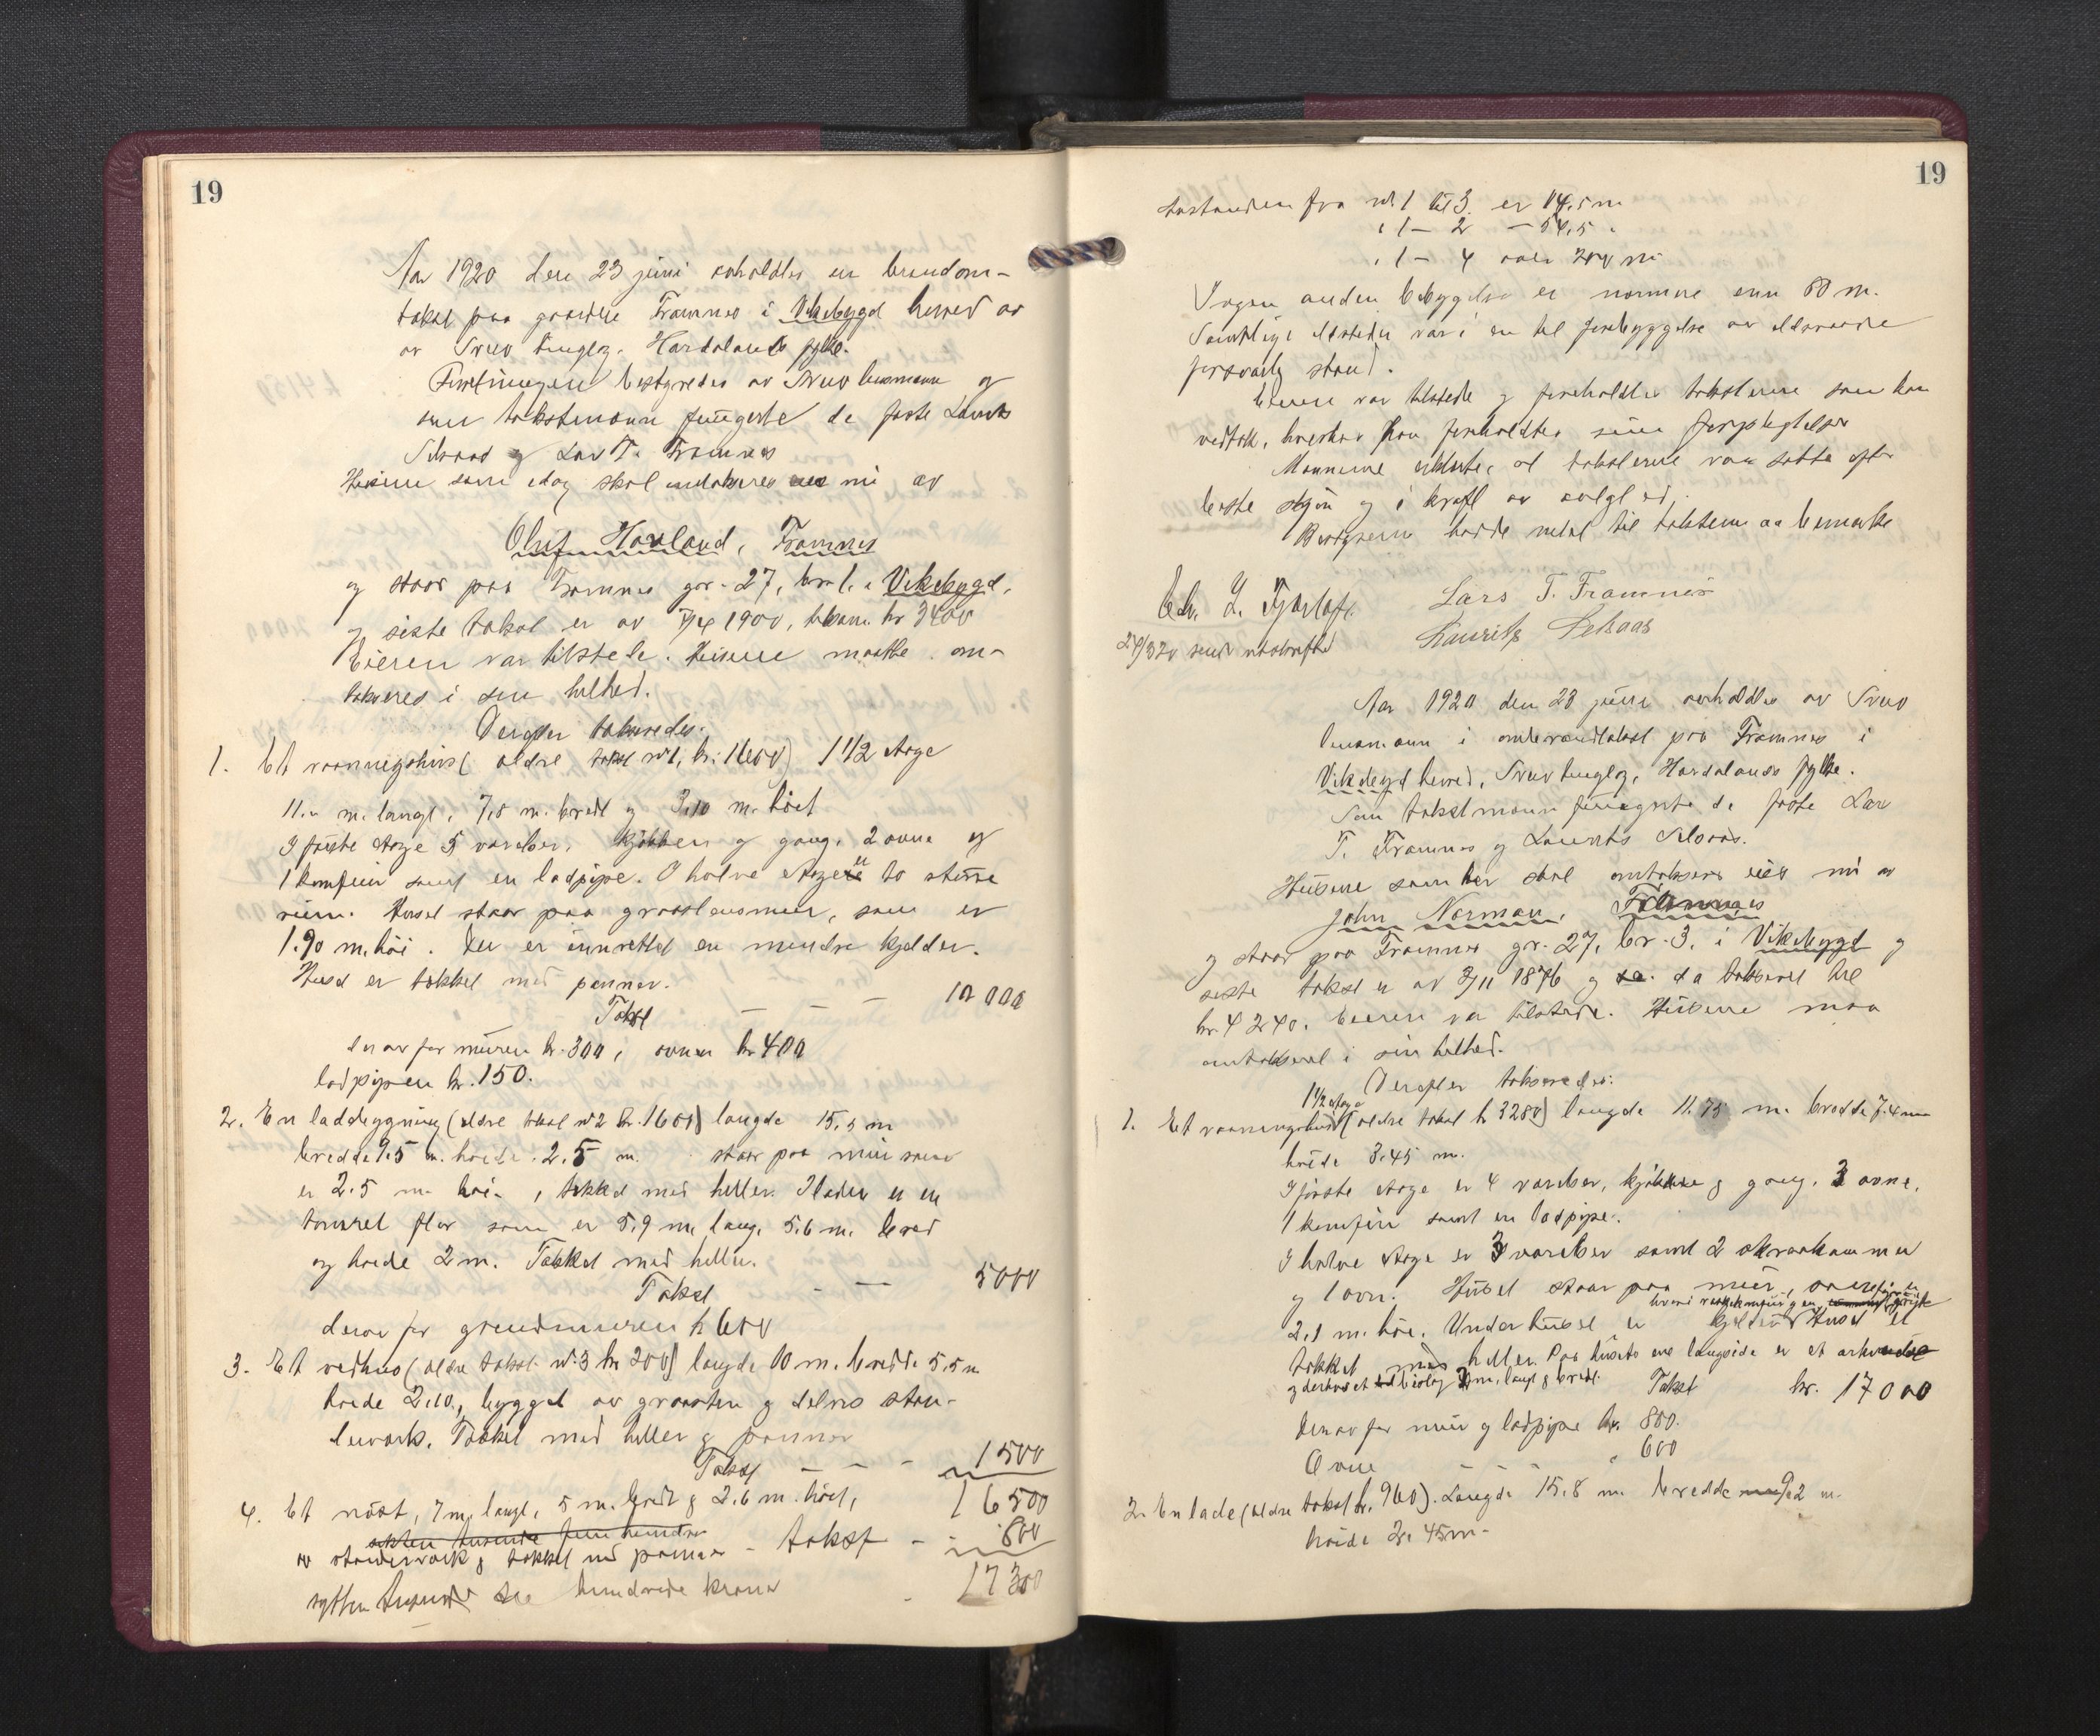 19
Aar 1920 den 23 juni avholdtes en brandom-
takst paa gaarden Framnes i Vikebygd herred av
av Sveo tinglag. Hordalands fylke.
Forretningen bestyredes av Sveo lensmann og
som takstmænn fungerte de faste Laurits
Silvaas og Lars T. Framnes
Husene som idag skal omtakseres eies nu av
Oluf Hovland, Framnes
og staar paa Framnes gr. 27, br. 1. i Vikebygd,
og siste takst er av 1900, tilsam. kr 3400
Eieren var tilstede. Husene maatte om-
takseres i sin helhed.
Derefter takseredes:
1. Et vaaningshus (ældre takst nr 1, kr. 1600) 1 1/2 etage
11. m. langt, 7,8 m. bredt og 3,10 m. höit
I förste etage 5 værelser, kjökken og gang. 2 ovne og
1 komfur samt en ladpipe. I halve etage er to större
rum. Huset staar paa graastensmur, som er
1.90 m. höi. Der er innrettet en mindre kjelder.
Huset er tækket med panner.
Takst — — — 10 000
derav for muren kr. 300, ovnen kr 400
ladpipen kr. 150.
2. En ladebygning (ældre takst nr 2 kr. 1600) længde 15,5 m
bredde 9.5 m. höide. 2.5 m. staar paa mur som
er 2.5 m höi , tækket med heller. I laden er en
tömret flor som er 5.9 m. lang, 5.6 m. bred
og höide 2 m. Tækket med heller.
Takst — — 5000
derav for grundmuren kr 600
3. Et vedhus (ældre takst nr. 3 kr 200) længde 10 m. bredde 5.5 m
höide 2.10, bygget av graasten og delvis stav-
læverk. Tækket med heller og panner
Takst — — — 1500
16500
4. Et nöst, 7 m. langt, 5 m. bredt og 2.6 m. höit,
sekten tusende fem hundre
av stavverk og tækket med panner - takst - 800
sytten tusende tre hundrede kroner 17300
19
Avstanden fra nr. 1 til 3 er 14,5 m
" 1 — 2 — 54,5 "
" 1 — 4 over 200 m
Ingen anden bebyggelse er nærmere enn 60 m.
Samtlige ildsteder var i en til forebyggelse av ildsvaade
forsvarlig stand.
Eieren var tilstede og foreholdtes taksterne som han
vedtok, hvorhos han foreholdtes sine forpligtelser
Mænnene erklærte, at taksterne var satte efter
beste skjön og i kraft av avlagt ed.
Bestyreren hadde intet til taksterne aa bemerke
Lars T. Framnes
Lauritz Silvaas
sendt utskrifter
Aar 1920 den 23 juni avholdtes av Sveo
lensmann i ombrandtakst paa Framnes i
Vikebygd herred, Sveo tinglag, Hordalands fylke.
Som takstmænn fungerte de faste Lars
T. Framnes og Laurits Silvaas.
Husene som her skal omtakseres eies nu av
John Norman, Framnes
og staar paa Framnes gr. 27, br. 3. i Vikebygd og
siste takst er av 3/11 1876 og da takseret til
kr. 4240. Eieren var tilstede. Husene maa
omtakseres i sin helhed.
Derefter takseredes:
1 1/2 etage
1. Et vaaningshus (ældre takst kr 3280) længde 11.75 m. bredde 7.4 m
höide 3.45 m.
I förste etage er 4 værelser, kjökken og gang. 3 ovne,
1 komfur samt en ladpipe.
I halve etage er 3 værelser samt 2 skraakammer
og 1 ovn. Huset staar paa mur,
2,1 m. höi. Under huset er kjelder Huset er
tækket med heller. Paa husets ene langside er et
Takst kr. 17000
Derav for mur og ladpipe kr. 800.
Ovne — — " 600
2. En lade (ældre takst kr. 960). Længde 15.8 m. bredde 9.2 m.
höide 2.45 m.